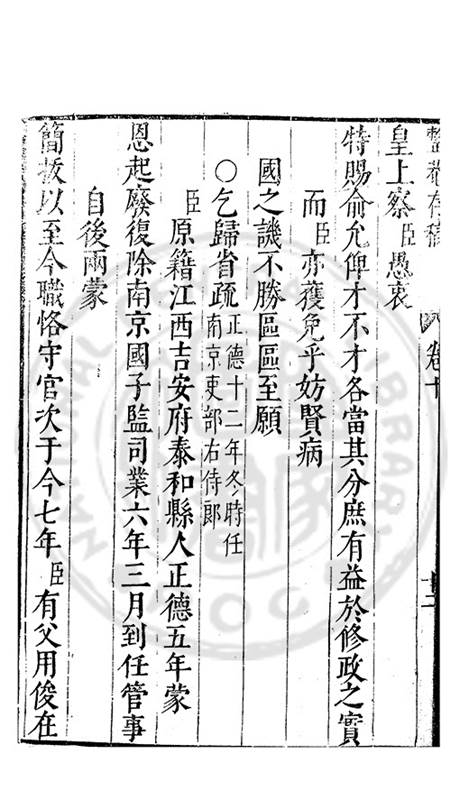 整菴存稿 卷十
皇上察臣愚衷
特賜俞允俾才不才各當其分庶有益於修政之實
而臣亦獲免乎妨賢病
國之譏不勝區區至願
○乞歸省疏正德十二年冬時任南京吏部右侍郎
臣原籍江西吉安府泰和縣人正德五年蒙
恩起廢復除南京國子監司業六年三月到任管事
自後兩蒙
簡拔以至今職恪守官次于今七年臣有父用俊在